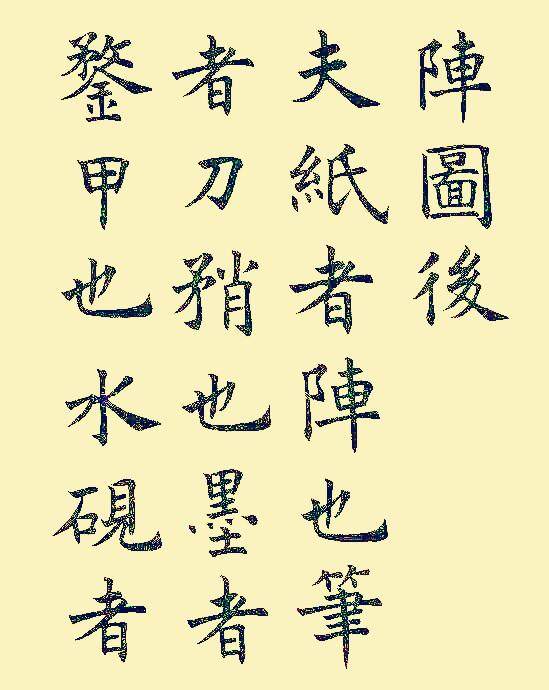 陣圖後
夫紙者陣也筆
者刀矟也墨者
鍪甲也水硯者